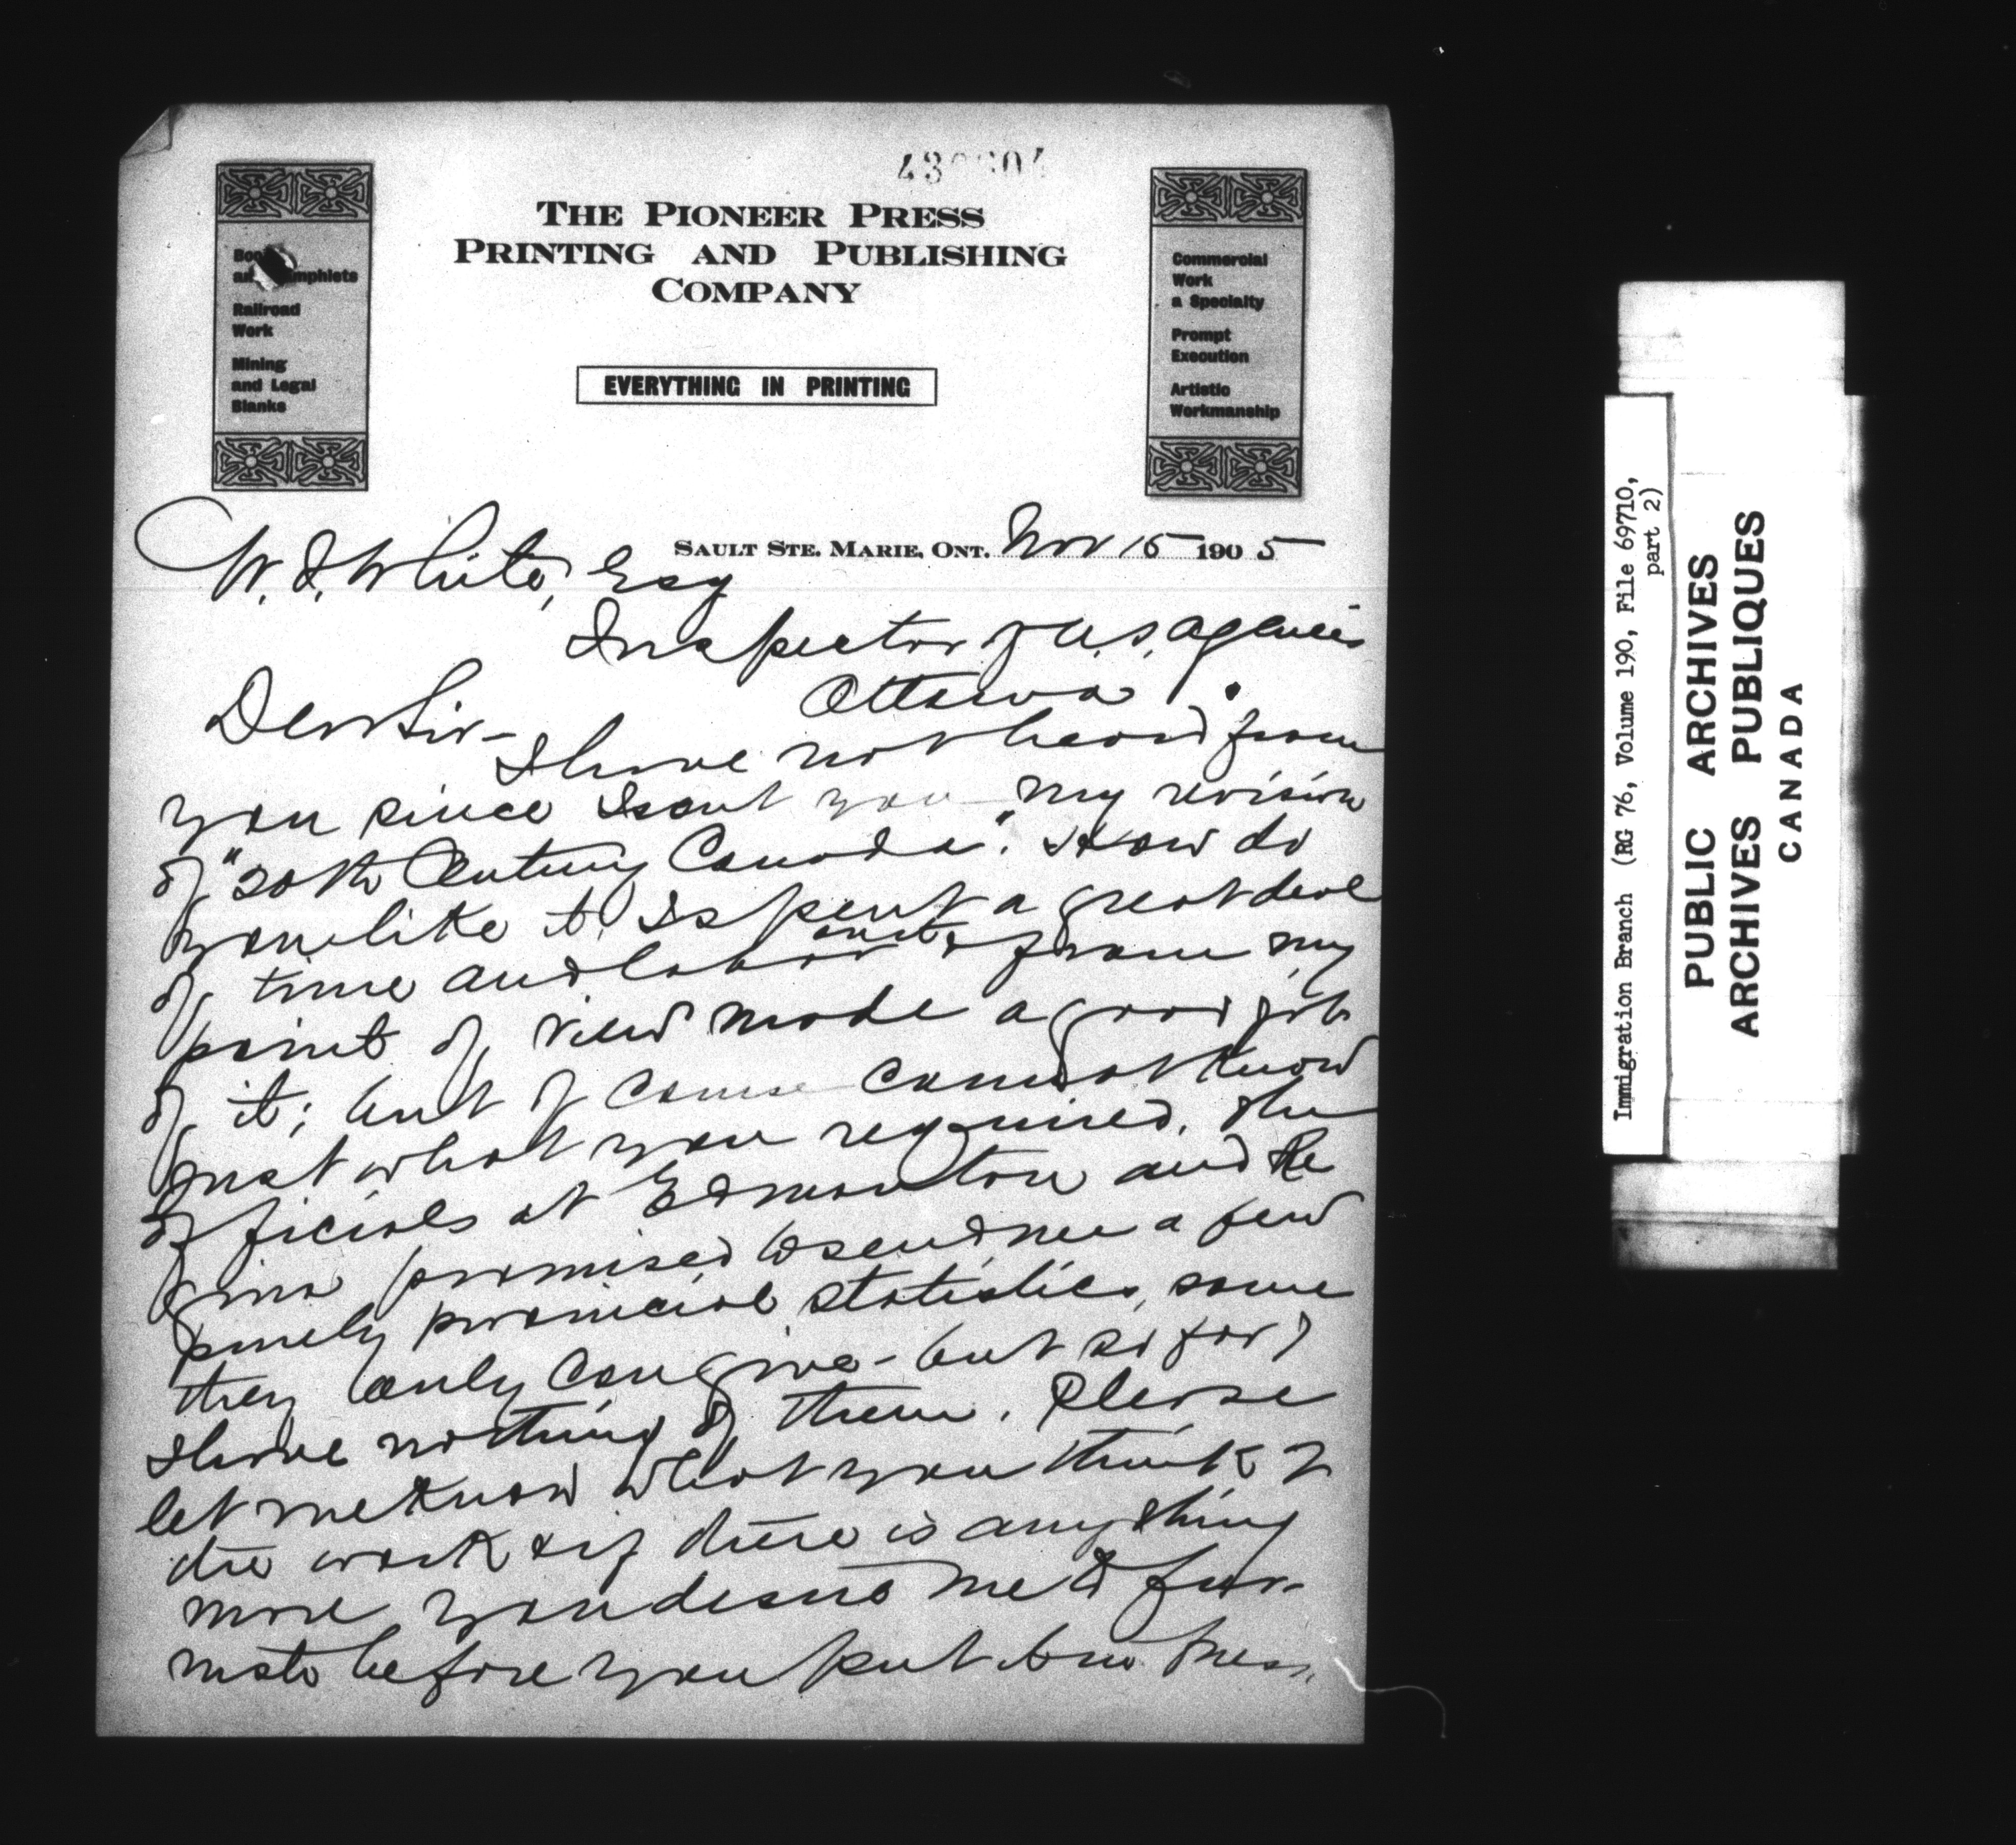 THE PIONEER PRESS
PRINTING AND PUBLISHING
COMPANY
EVERYTHING IN PRINTING
Railroad
Work
Mining
and Legal
Blanks
Commercial
Work
a Specialty
Prompt
Execution
Artistic
Workmanship
SAULT STE. MARIE, ONT. Nov 15 1905
W. J. White, Esq
Inspector of U.S. Agencies
Ottawa
Dear Sir -
I have not heard from
you since I sent you my revision
of "20th Century Canada". How do
you like it. I spent a great deal
of time and labor on it & from my
point of view made a good job
of it; but of course cannot know
just what you required. The
officials at Edmonton and Re
gina promised to send me a few
purely provincial statistics, some
they only can give - but so far
I have nothing of them. Please
let me know what you think of
the work & if there is anything
more you desire me to fur-
nish before you put to press.
Immigration Branch (RG 76, Volume 190, File 69710,
part 2)
PUBLIC ARCHIVES
ARCHIVES PUBLIQUES
CANADA